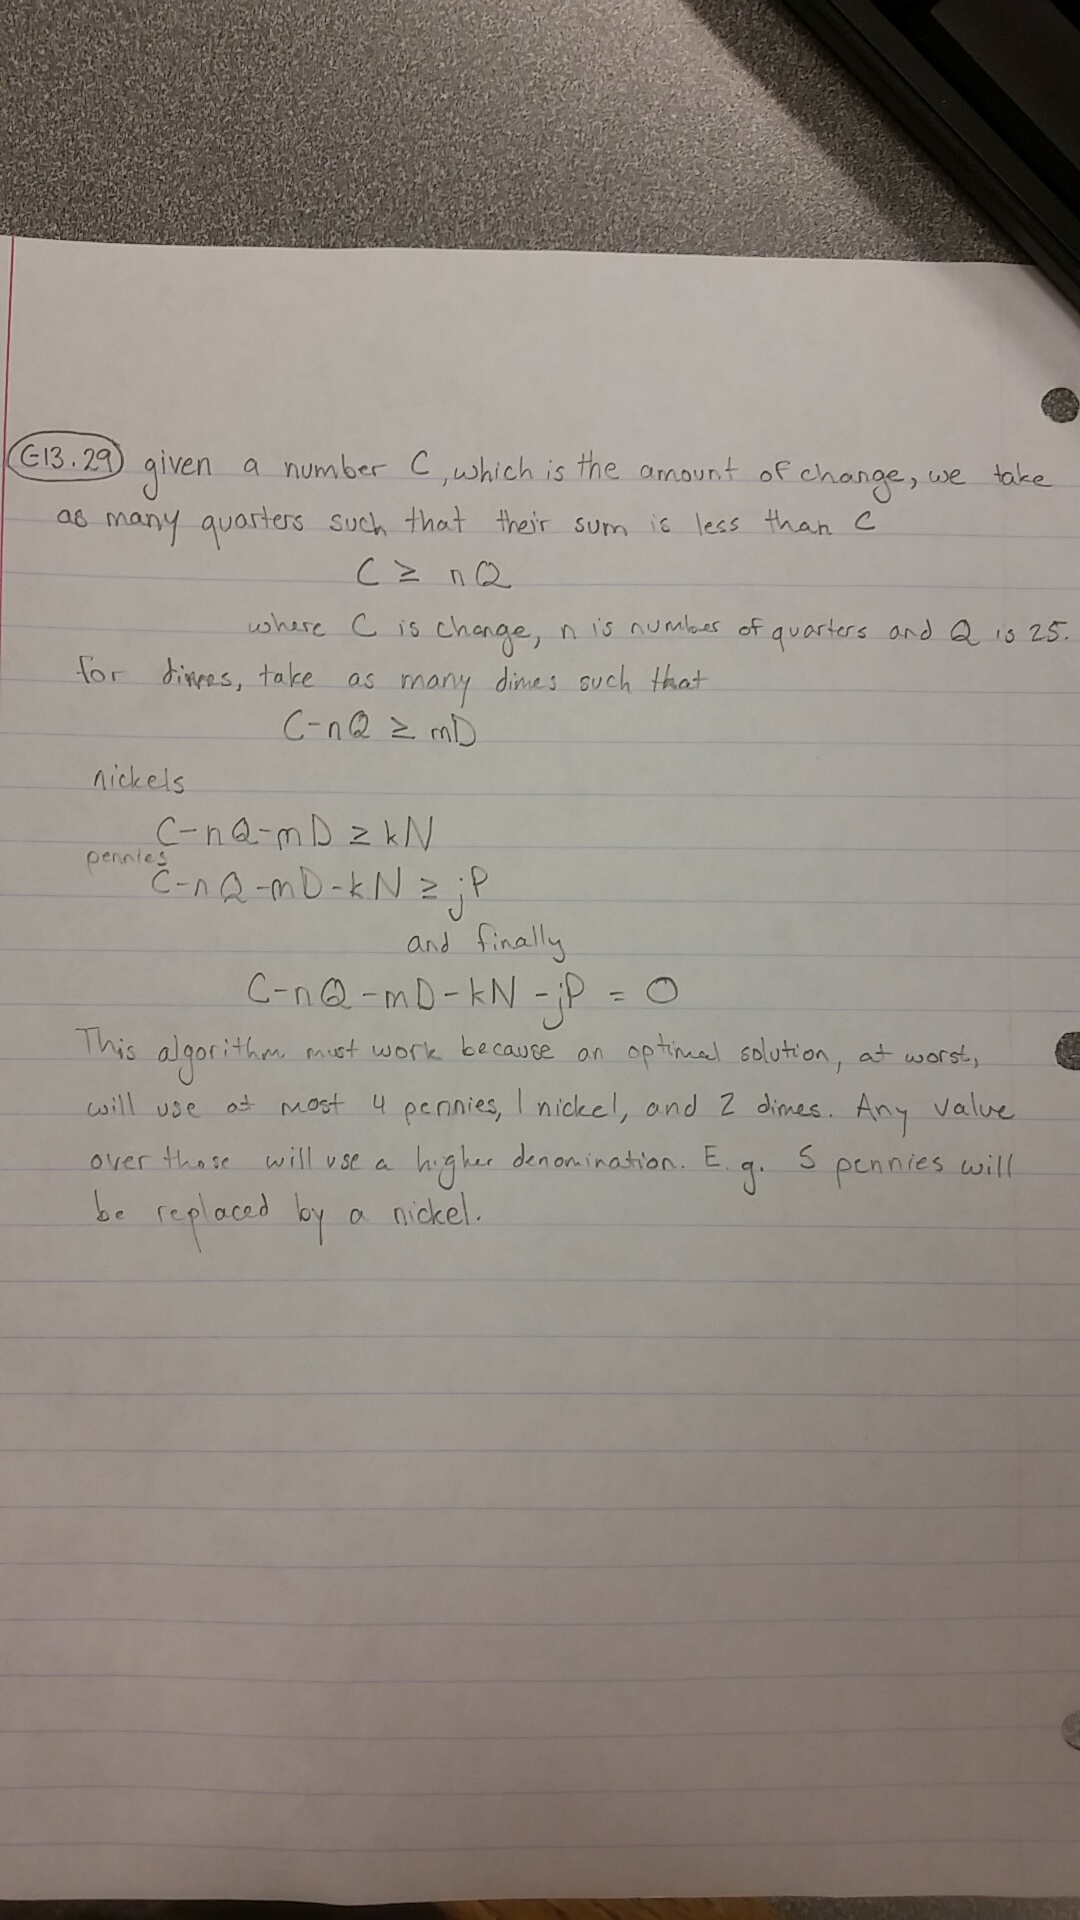 G13.29 given a number C, which is the amount of change, we take
as many quarters such that their sum is less than C
C ≥ nQ
where C is change, n is number of quarters and Q is 25.
for dimes, take as many dimes such that
C-nQ ≥ mD
nickels
C-nQ-mD ≥ kN
pennies
C-nQ-mD-kN ≥ jP
and finally
C-nQ-mD-kN-jP = 0
This algorithm must work because an optimal solution, at worst,
will use at most 4 pennies, 1 nickel, and 2 dimes. Any value
over those will use a higher denomination. E.g. 5 pennies will
be replaced by a nickel.